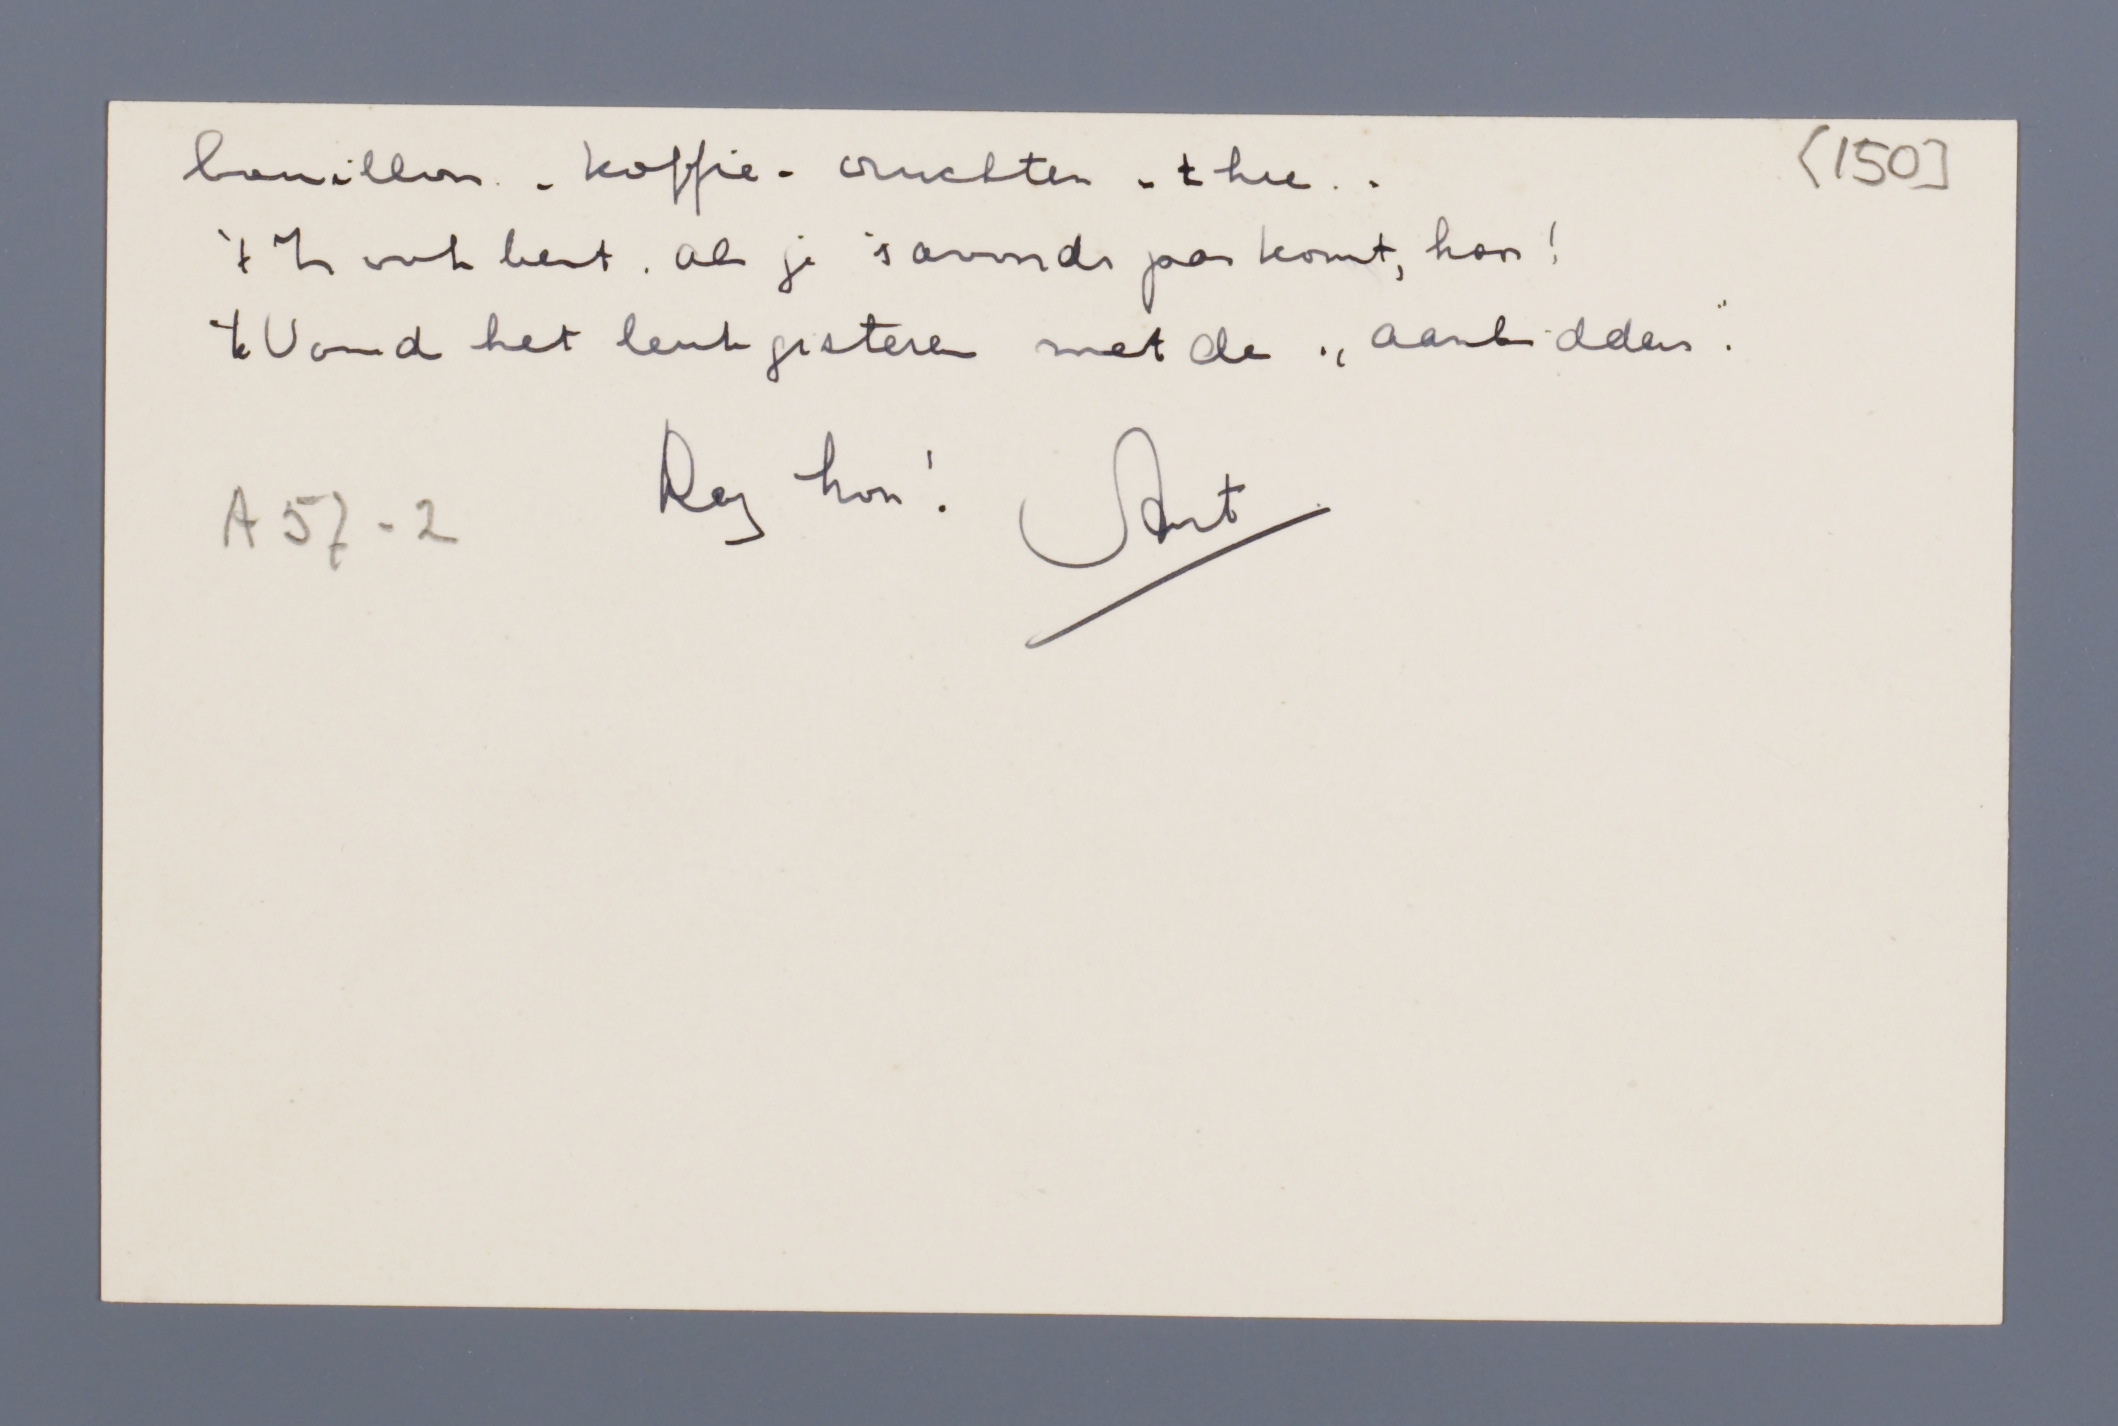 bouillon - koffie - vruchten - thee . .
[150]
't Is ook best als je 's avonds pas komt, hoor!
'k Vond het leuk gisteren met de „aanbidders".
Dag hoor! Aert
A57-2